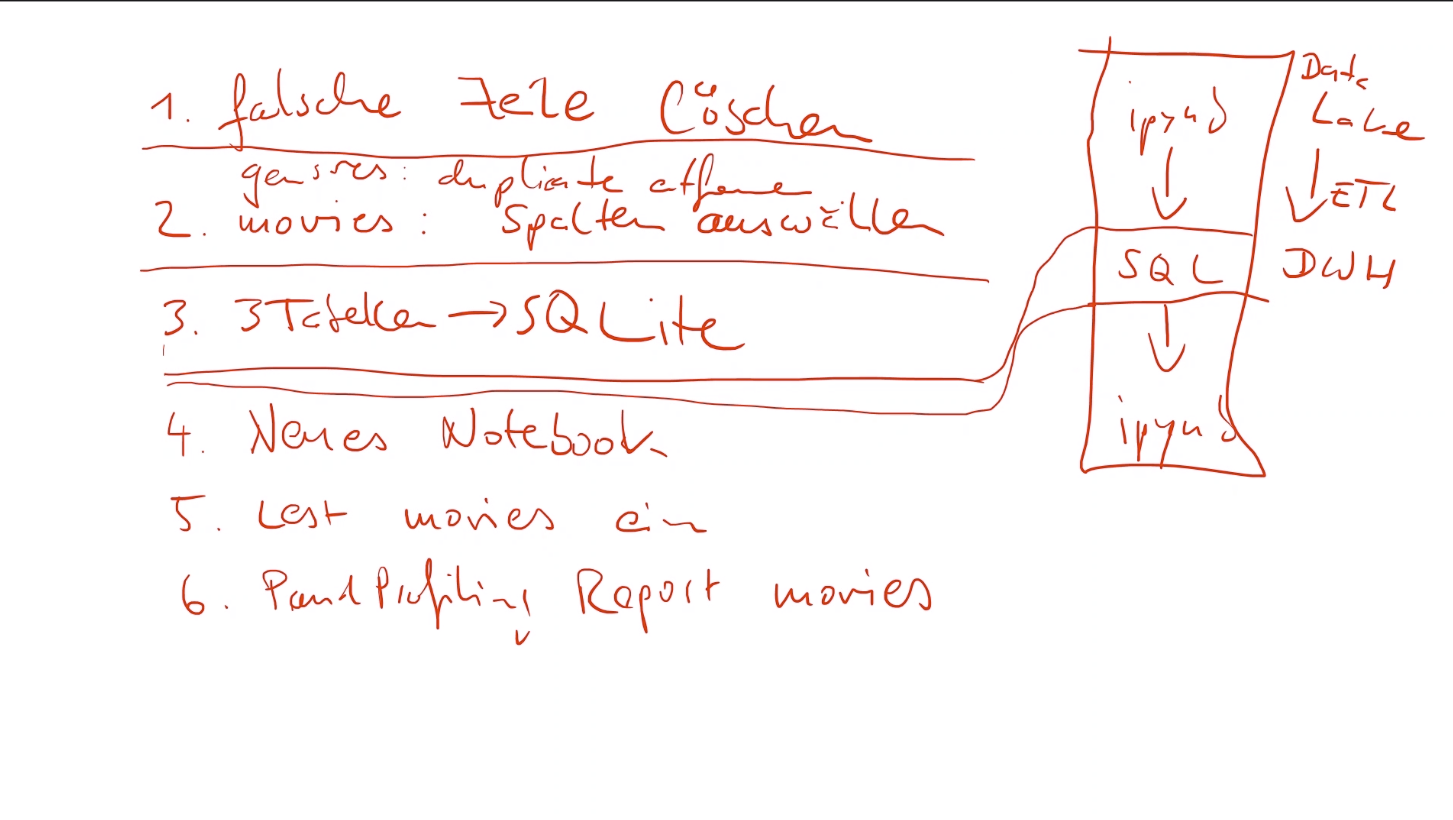 1. falsche Zeile löschen
genres: duplicate
2. movies: Spalten auswählen
3. 3 Tabellen → SQLite
4. Neues Notebook
5. Lest movies ein
6. PandProfiling Report movies
ipynb
Data
Lake
ETL
SQL
DWH
ipynb